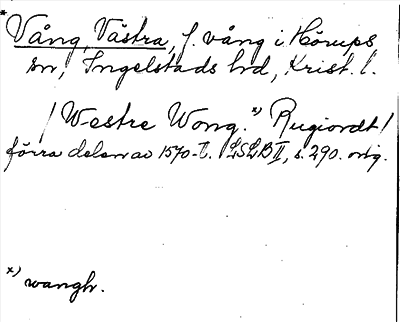 * Vång, Västra, f. vång i Hörups
sn, Ingelstads hd, Krist. l.
/ Westre Wong. *) Rugiordt /
förra delen av 1570-t. LSLB II, s. 290. orig.
*) wangh.